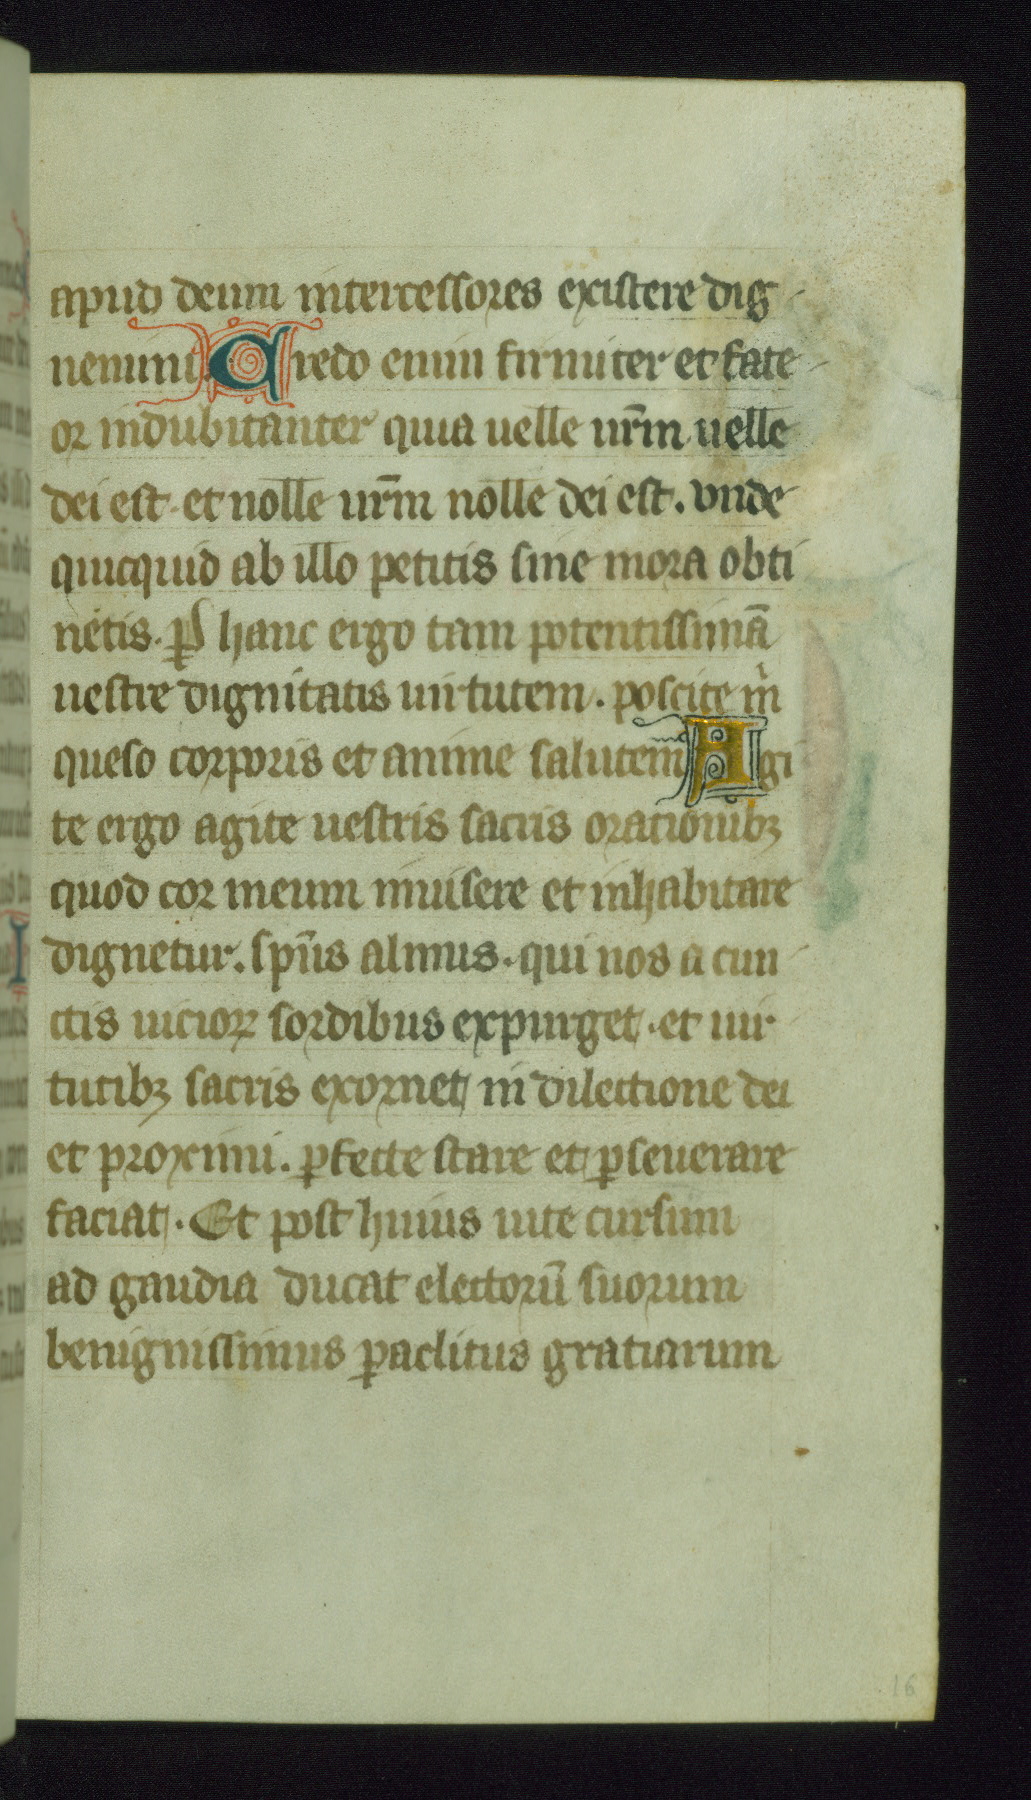 apud deum intercessores existere dig
nemini. Credo enim firmiter et fate
or indubitanter quia uelle ur̄m uelle
dei est. et nolle ur̄m nolle dei est. vnde
quicquid ab illo petitis sine mora obti
netis. P̱ hanc ergo tam potentissimā
uestre dignitatis uirtutem. poscite m̍
queso corporis et anime salutem Agi
te ergo agite uestris sacris orationibꝫ
quod cor meum inuisere et inhabitare
dignetur. sp̄us almus. qui nos a cun
ctis uicioꝝ sordibus expurget. et uir
tutibꝫ sacris exornet in dilectione dei
et proximi. ꝑfecte stare et ꝑseuerare
faciat. Et post huius uite cursum
ad gaudia ducat electorū suorum
benignissimus ꝑaclitus gratiarum
16